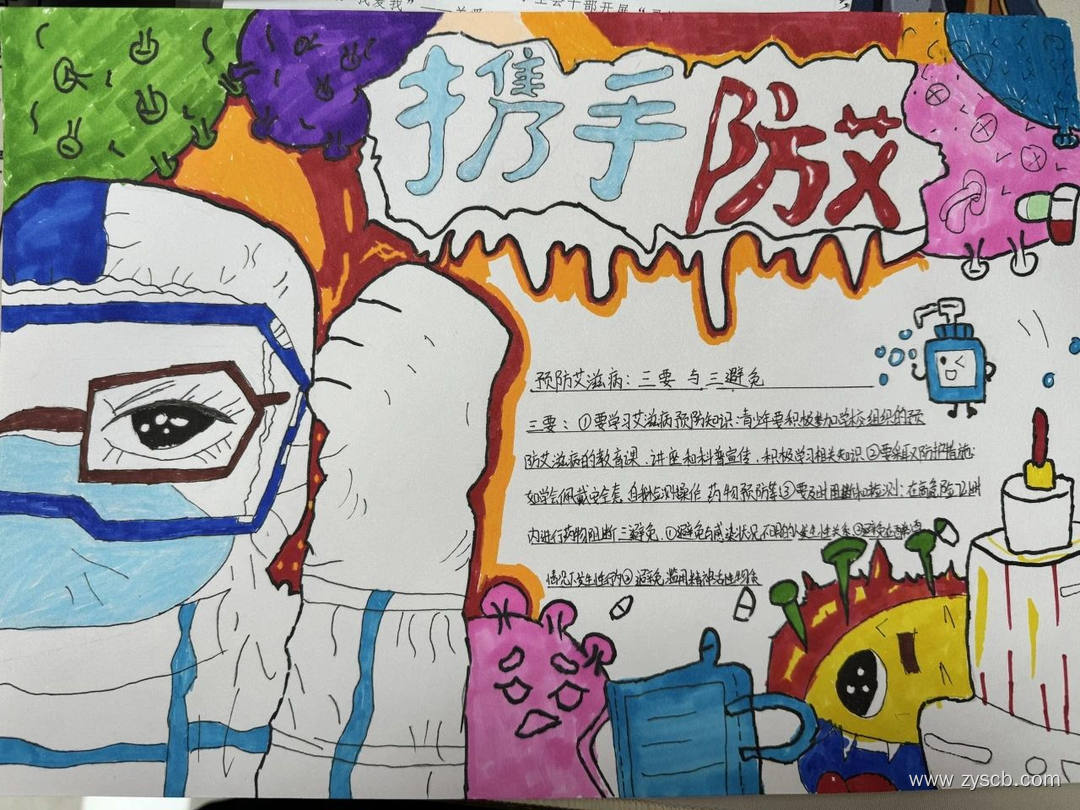 携手防艾
预防艾滋病：三要与三避免
三要：①要学习艾滋病预防知识：青少年要积极参加学校组织的预
防艾滋病的教育课、讲座和科普宣传，积极学习相关知识②要采取防护措施：
如学会佩戴安全套、自我检测操作、药物预防等③要及时用阻断和检测：在高危险
内进行药物阻断三避免：①避免与感染状况不明的人发生性关系②避免在
情况下发生性行为③避免滥用精神活性物质
www.zyscb.com